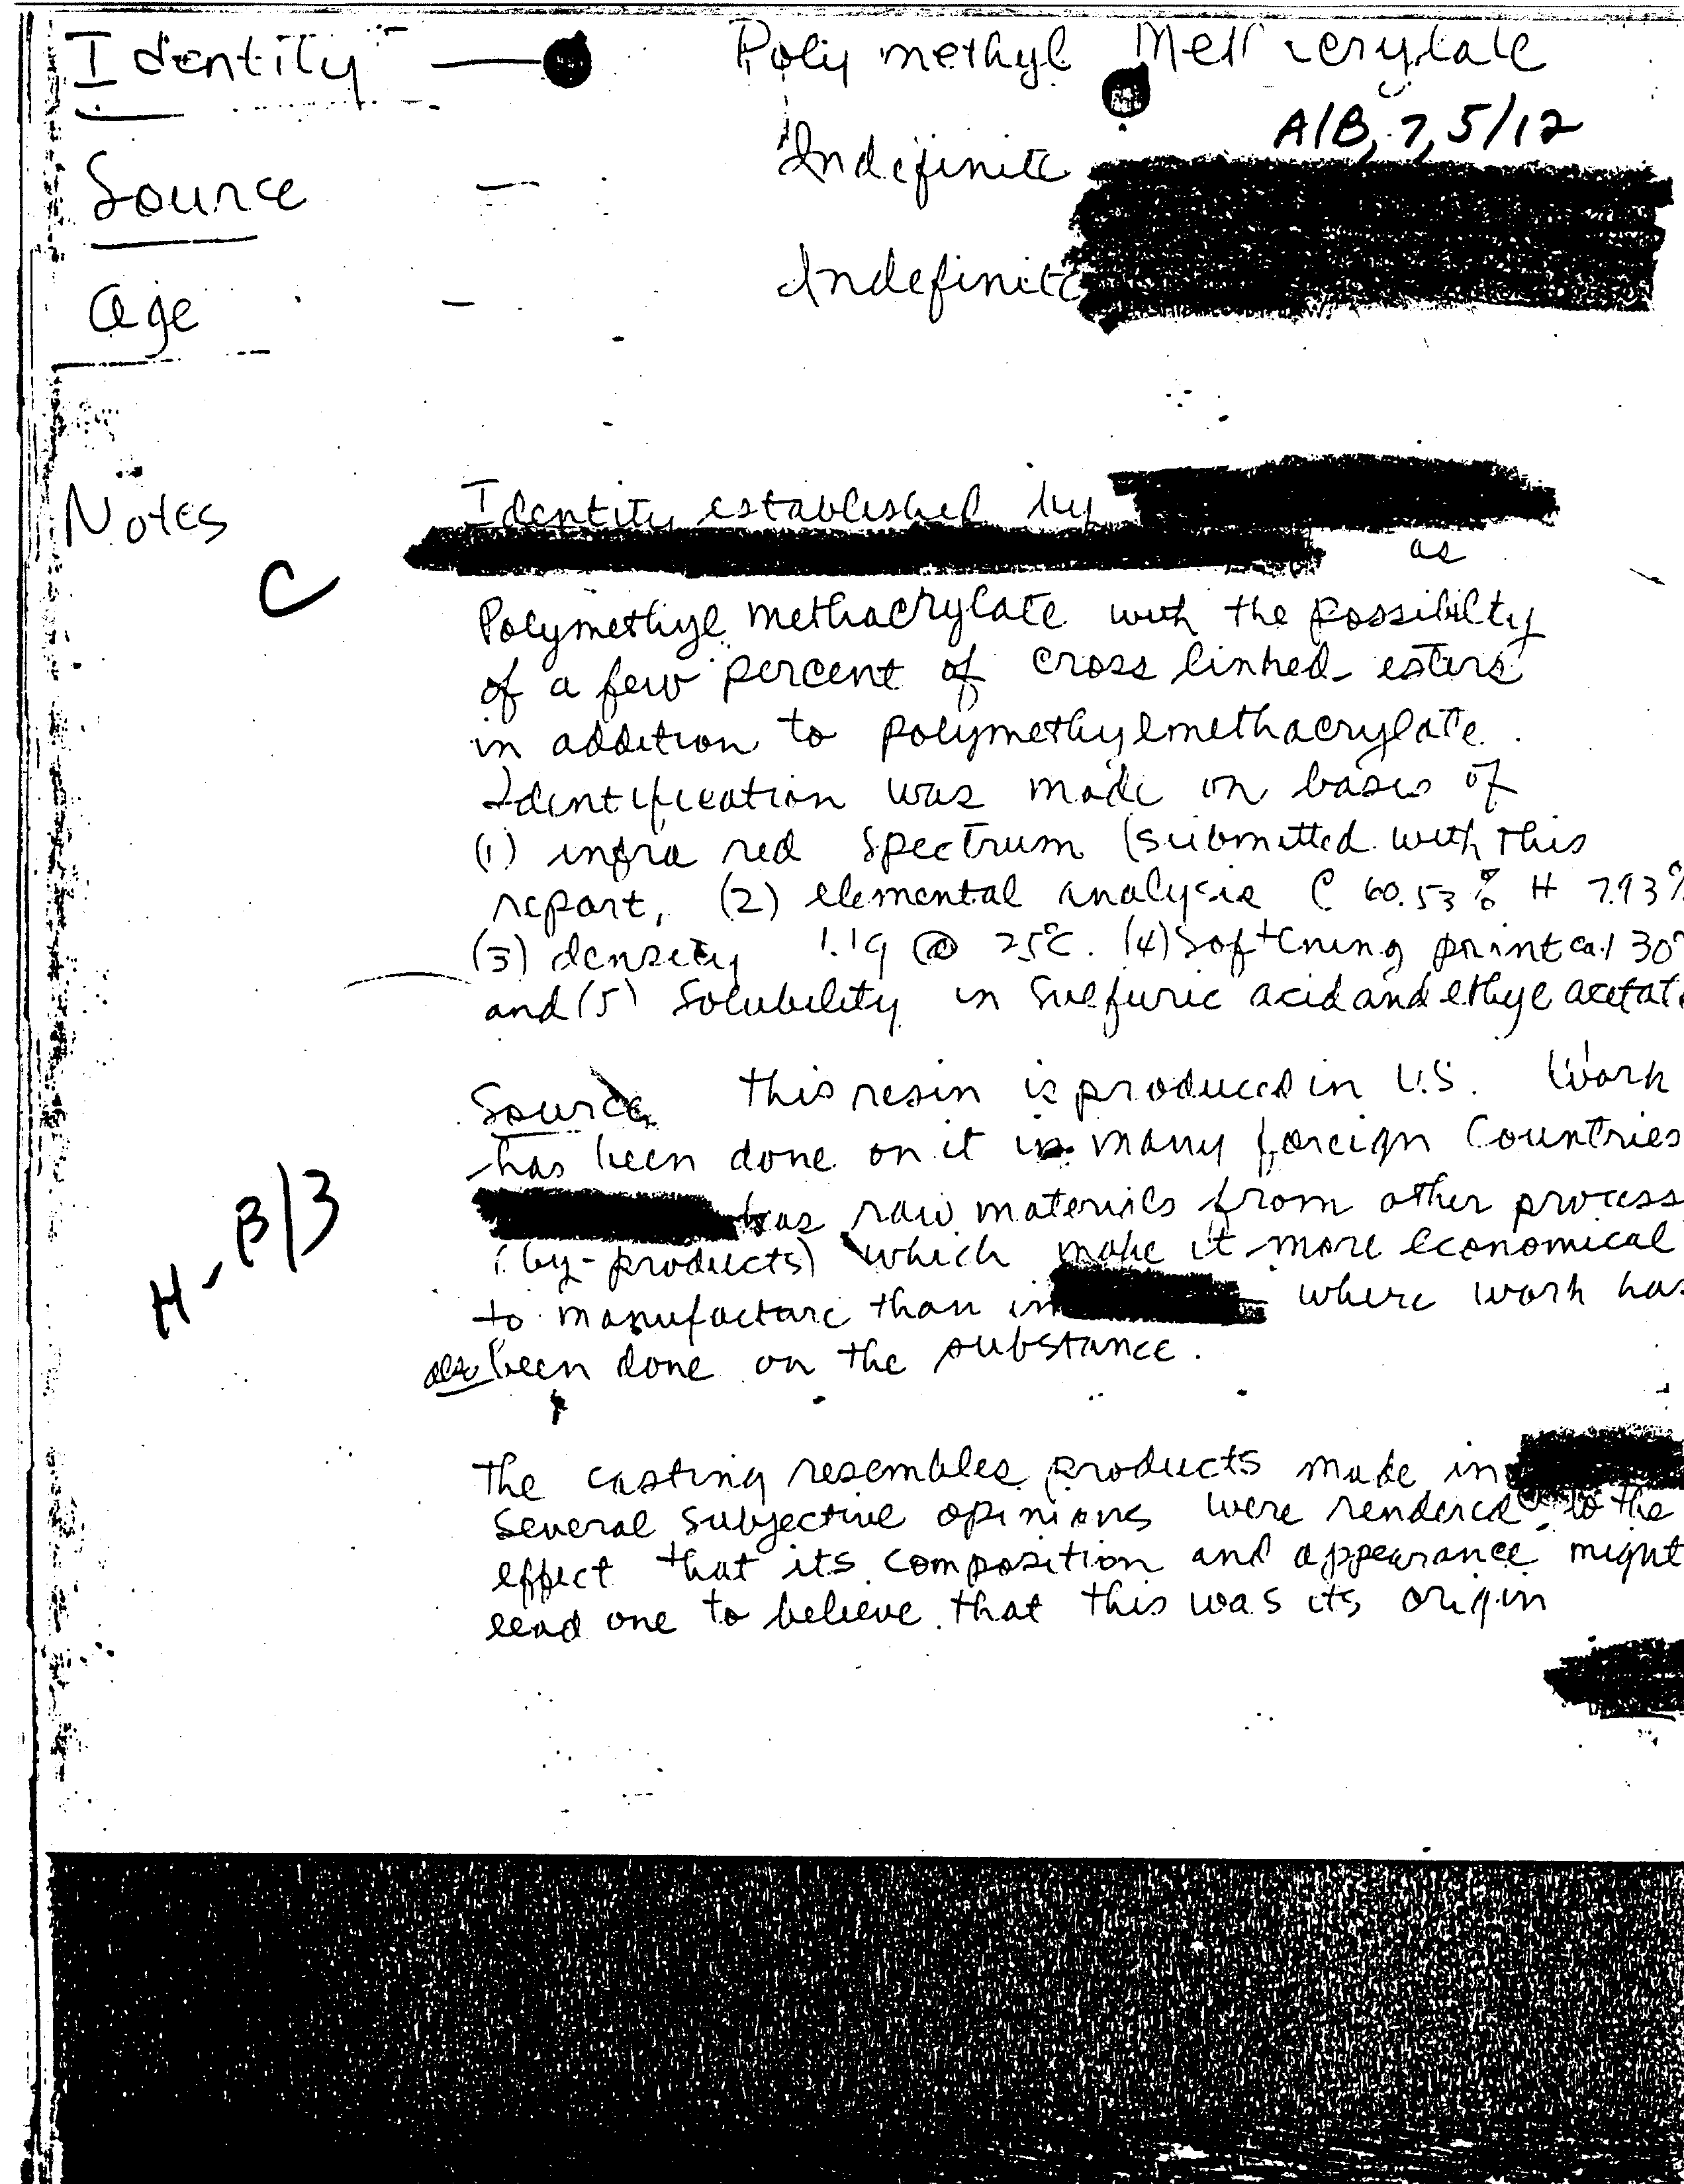 Identity — Poly methyl
A/B, 7, 5/12
Source — Indefinite
Age — Indefinite
Notes Identity established by
C as
Polymethyl methacrylate with the possibilty
of a few percent of cross linked esters
in addition to polymethylmethacrylate.
Identification was made on basis of
(1) infra red spectrum (submitted with this
report, (2) elemental analysis C 60.53% H 7.93%
(3) density 1.19 @ 25°C. (4) Softening point ca. 130°
and (5) Solubility in sulfuric acid and ethyl acetate
Source this resin is produced in U.S. Work
has been done on it in many foreign Countries
has raw materials from other process
H-B/3
(by-products) which make it more economical
to manufacture than in where work has
also been done on the substance.
The casting resembles products made in
Several subjective opinions were rendered to the
effect that its composition and appearance might
lead one to believe that this was its origin